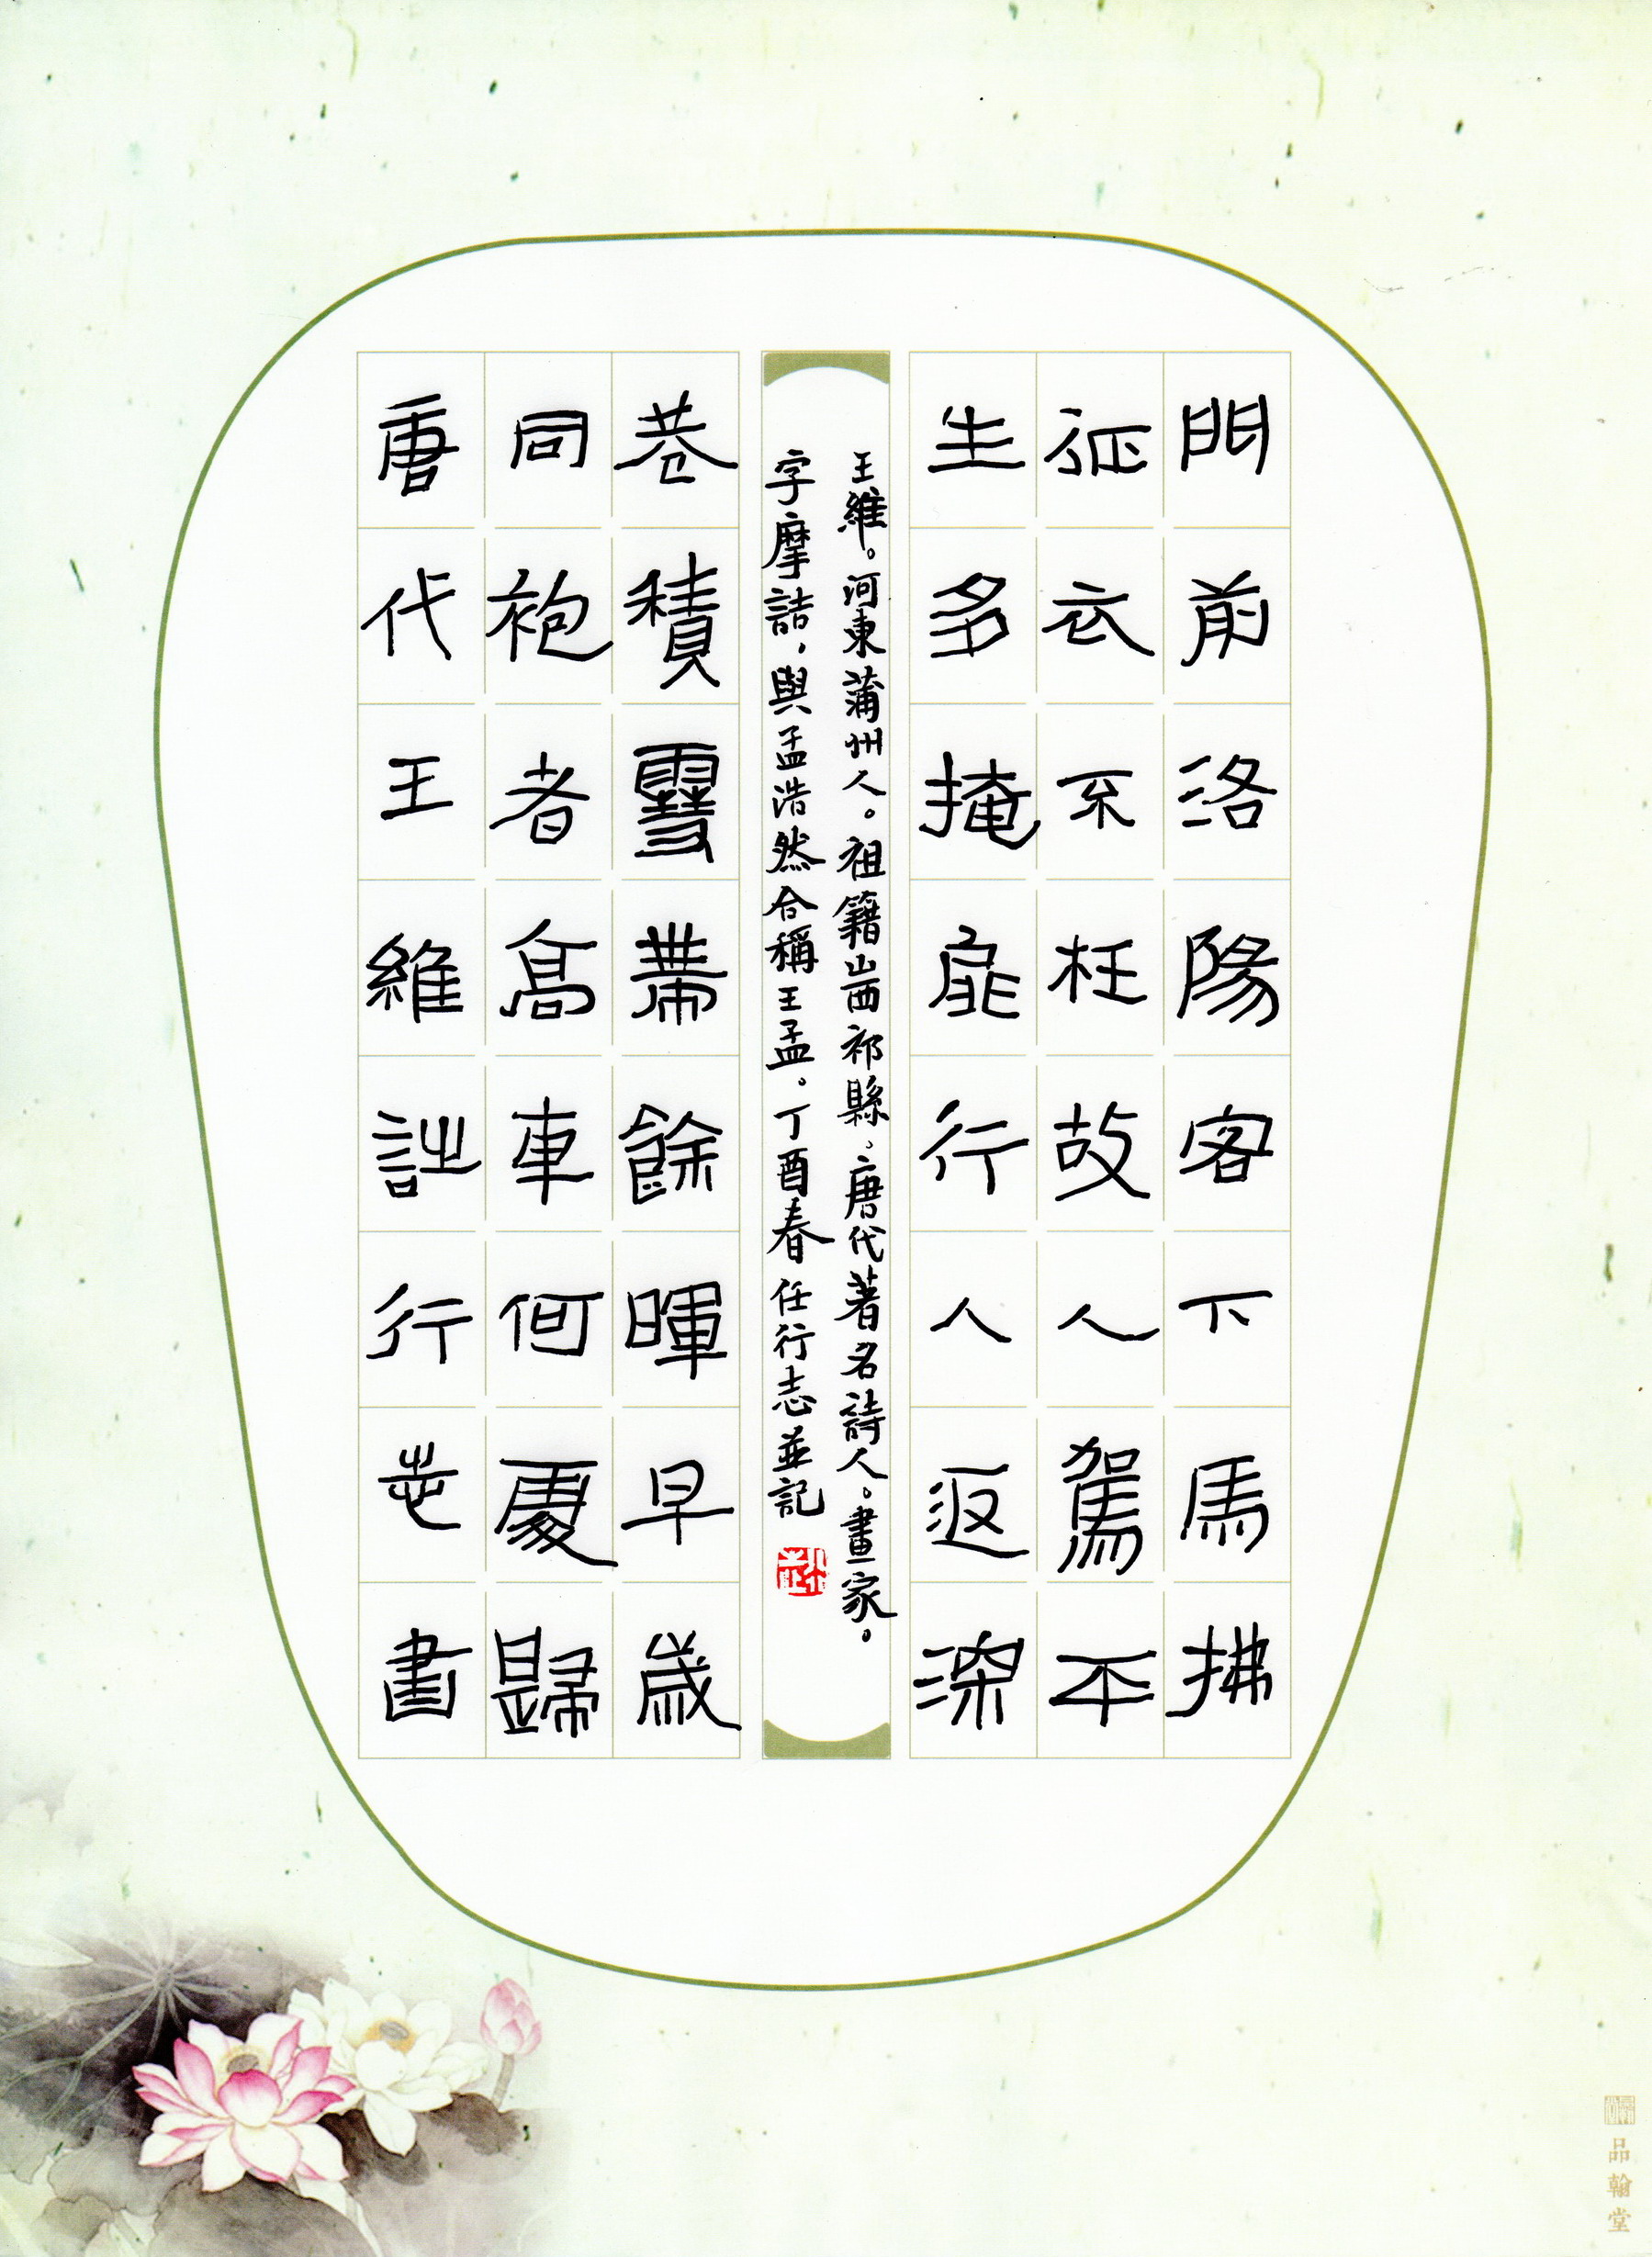 門前洛陽客下馬拂
征衣不枉故人駕平
生多掩扉行人返深
巷積雪帶餘暉早歲
同袍者高車何處歸
唐代王維詩行志書
王維。河東蒲州人。祖籍山西祁縣、唐代著名詩人。畫家。
字摩詰，與孟浩然合稱王孟。丁酉春 任行志並記
品翰堂